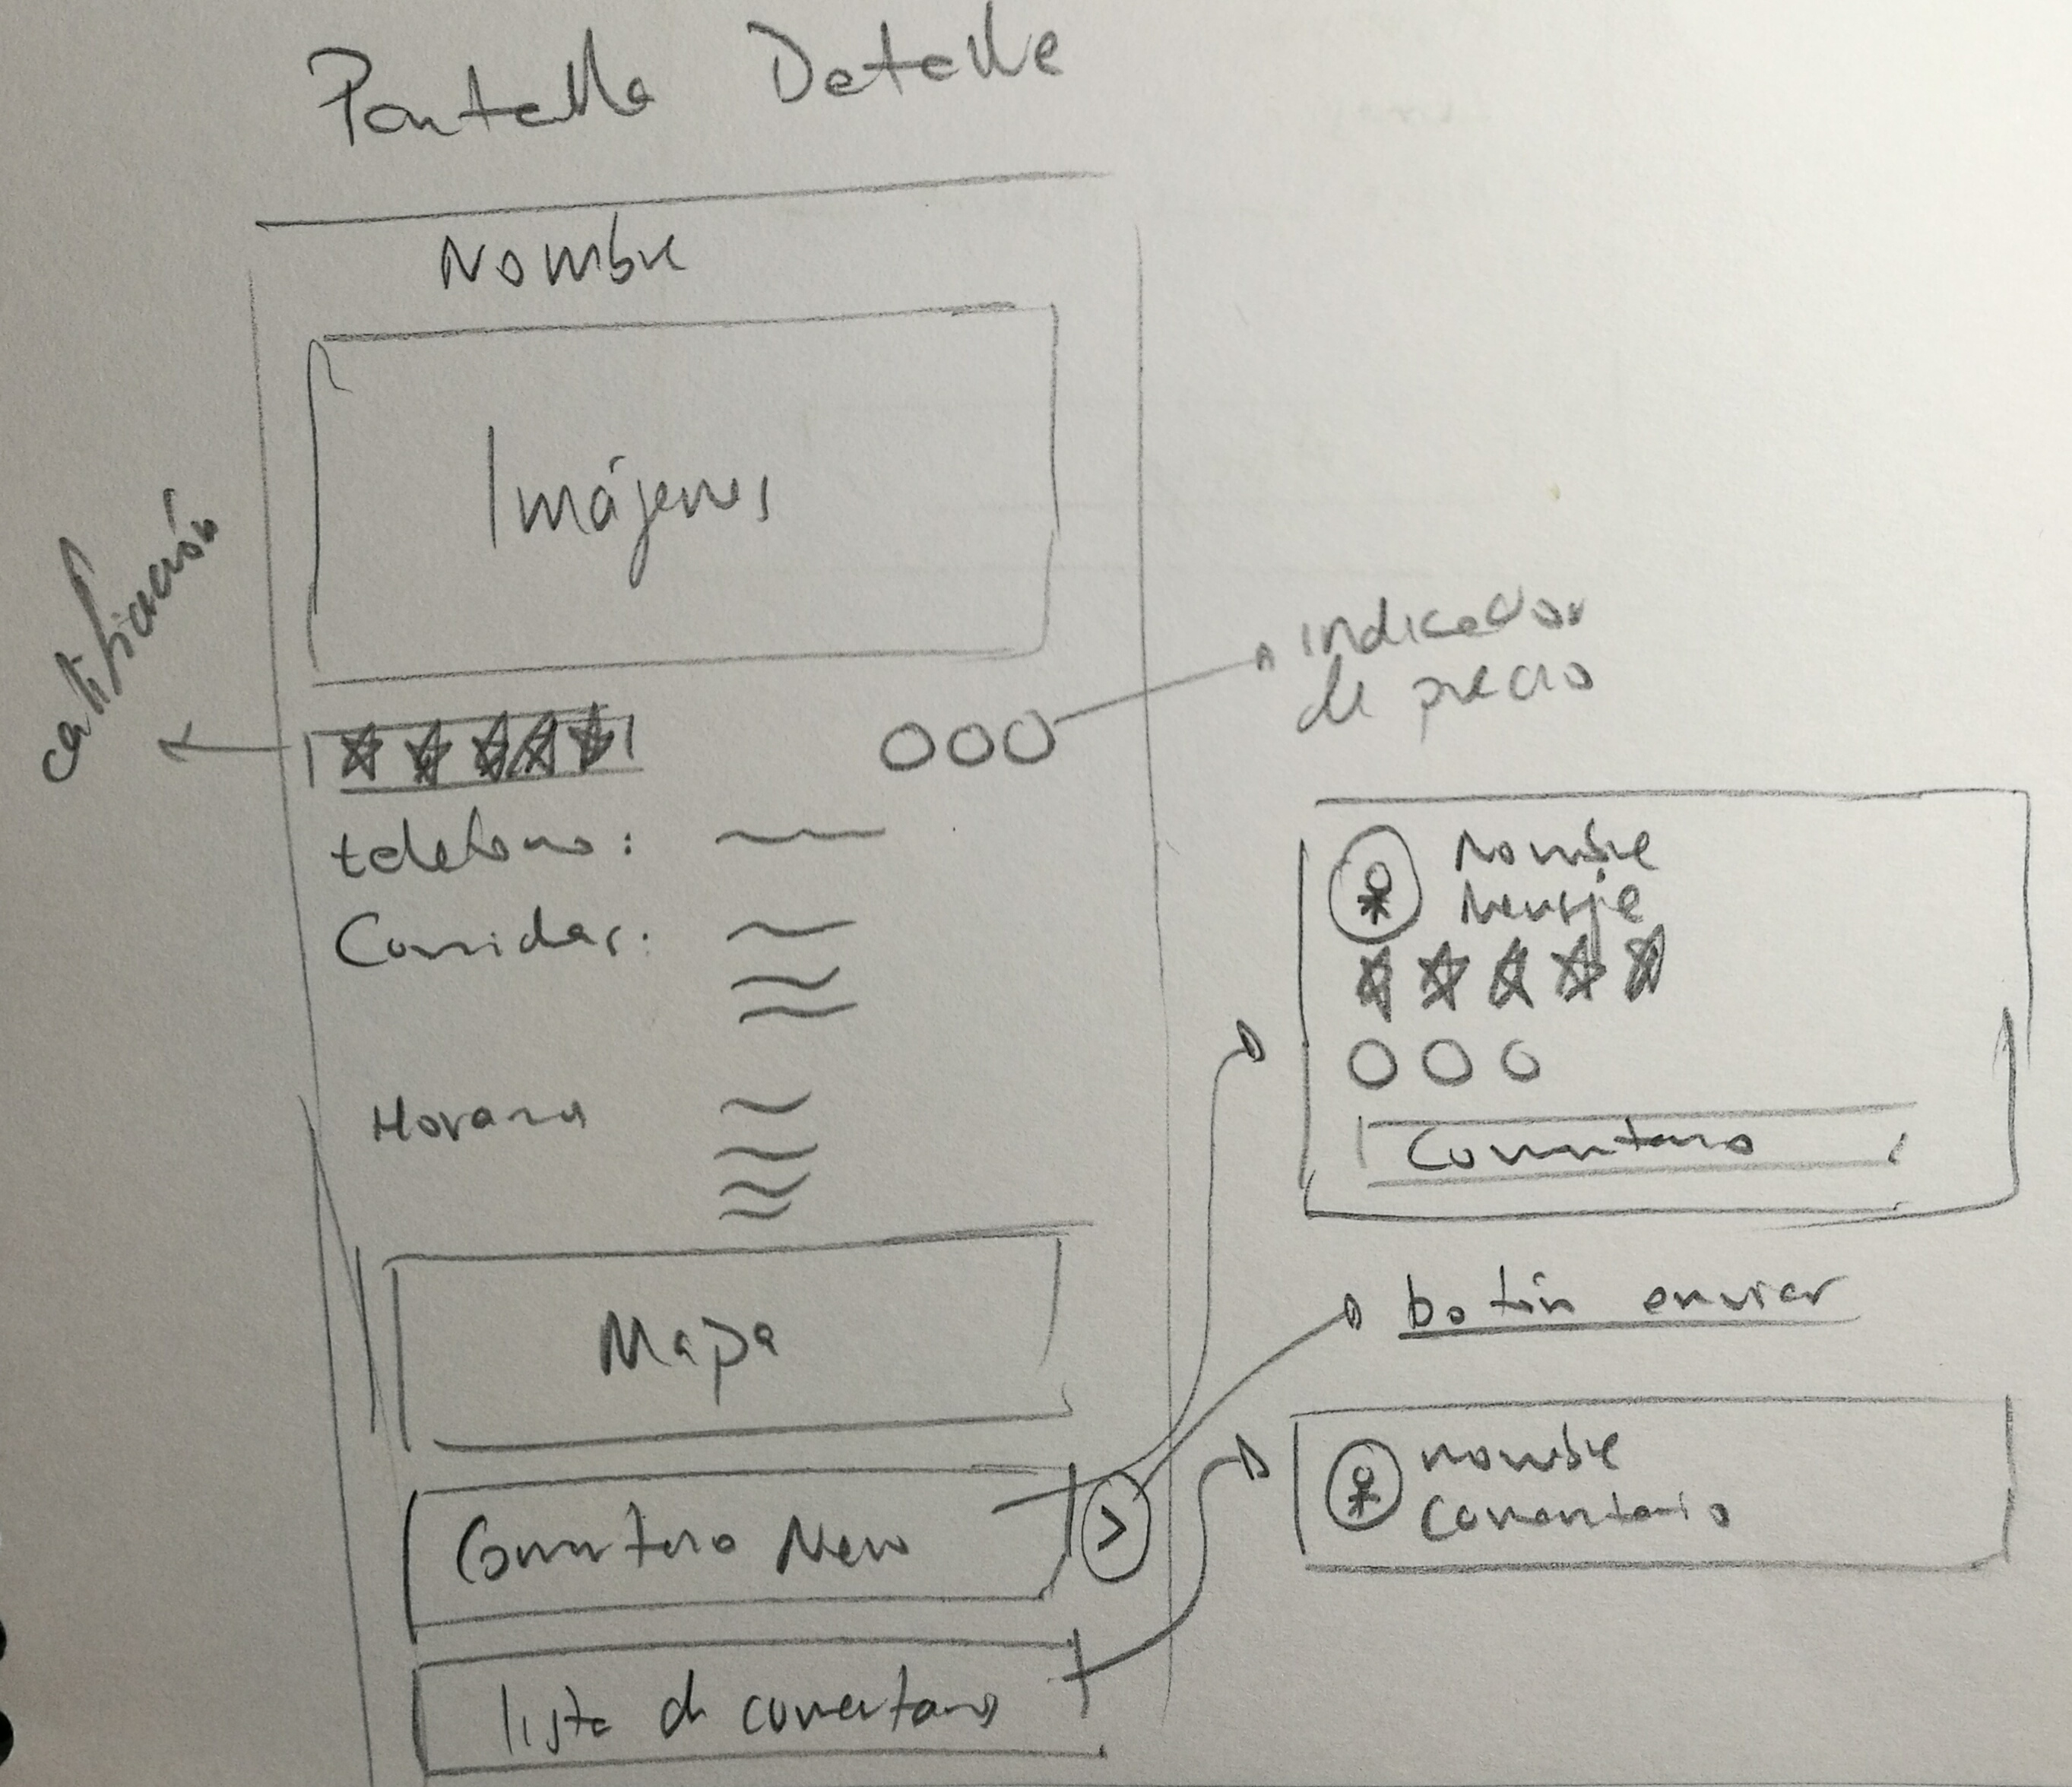 Pantalla Detalle
Nombre
Imágenes
calificación
indicador
de precio
telefono:
Comidas:
Horarios
Mapa
Comentario New
>
lista de comentarios
Nombre
Mensaje
Comentario
botón enviar
nombre
comentario